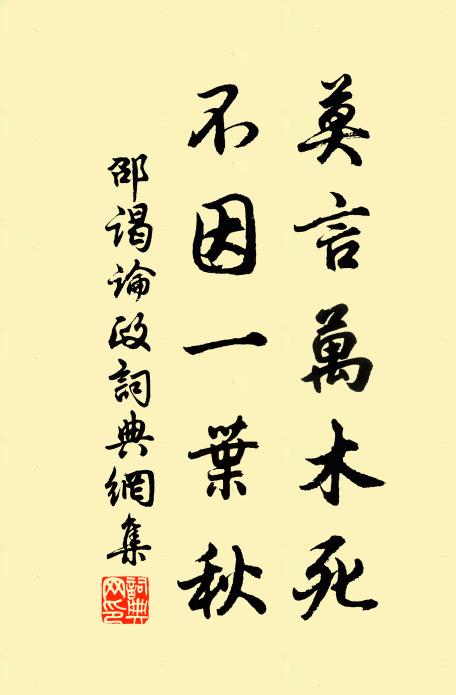 莫言萬木死
不因一葉秋
邵謁論政詞典網集
詞典网印